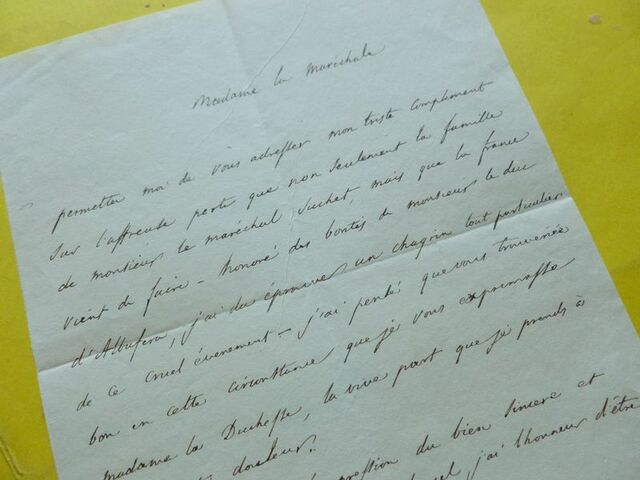 Madame la Maréchale
permettez moi de vous adresser mon triste compliment
sur l'affreuse perte que non seulement la famille
de monsieur le maréchal Suchet, mais que la france
vient de faire - honoré des bontés de monsieur le duc
d'Albufera, j'ai du éprouver un chagrin tout particulier
de ce cruel évenement - j'ai pensé que vous trouveriés
bon en cette circonstance que je vous exprimasse
madame la Duchesse, la vive part que je prends à
douleur.
du bien sincere et
j'ai l'honneur d'être